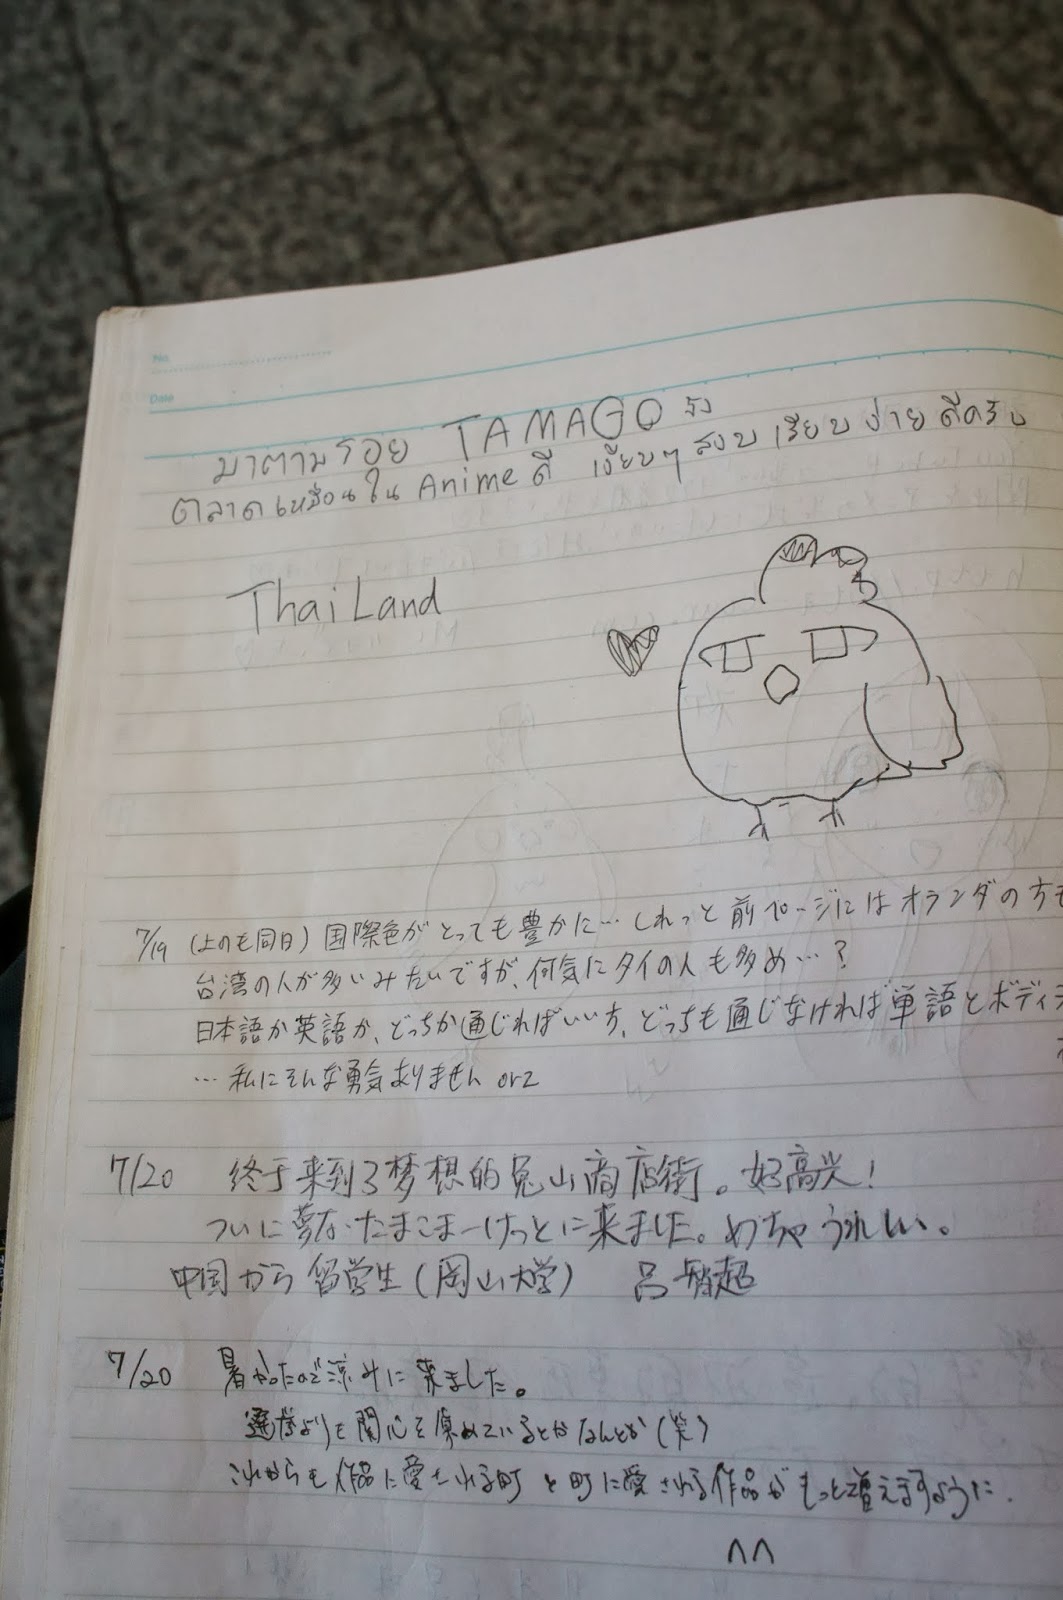 No.
Date
มาตามรอย TAMAGO
ตลาดเหมือนใน Anime ดี เงียบๆ สงบ เรียบง่าย ดีครับ
ThaiLand
7/19 (上のも同日) 国際色がとっても豊かに… しれっと前ページにはオランダの方も
台湾の人が多いみたいですが、何気にタイの人も多め…?
日本語か英語か、どっちか通じればいい方、どっちも通じなければ単語とボディ
…私にそんな勇気ありません orz
7/20 终于来到了梦想的兔山商店街。好高兴!
ついに夢なたまこまーけっとに来ました。めちゃうれしい。
中国から留学生(岡山大学) 呂
7/20 暑かったので涼みに来ました。
選挙よりも関心を集めているとかなんとか(笑)
これからも作品に愛される町と町に愛される作品がもっと増えますように.
^^